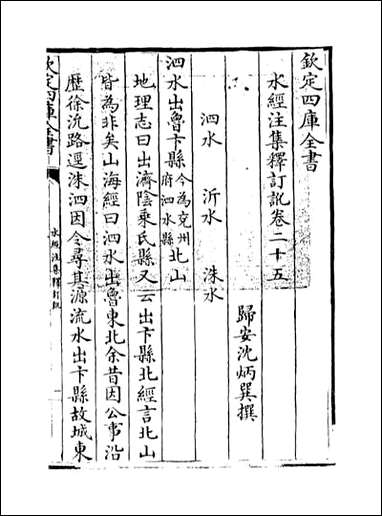 欽定四庫全書
水經注集釋訂訛卷二十五
歸安沈炳巽撰
泗水 沂水 洙水
泗水出魯卞縣今為兖州府泗水縣北山
地理志曰出濟陰乘氏縣又云出卞縣北經言北山
皆為非矣山海經曰泗水出魯東北余昔因公事沿
歷徐沇路逕洙泗因令尋其源流水出卞縣故城東
欽定四庫全書
水經注集釋訂訛
一